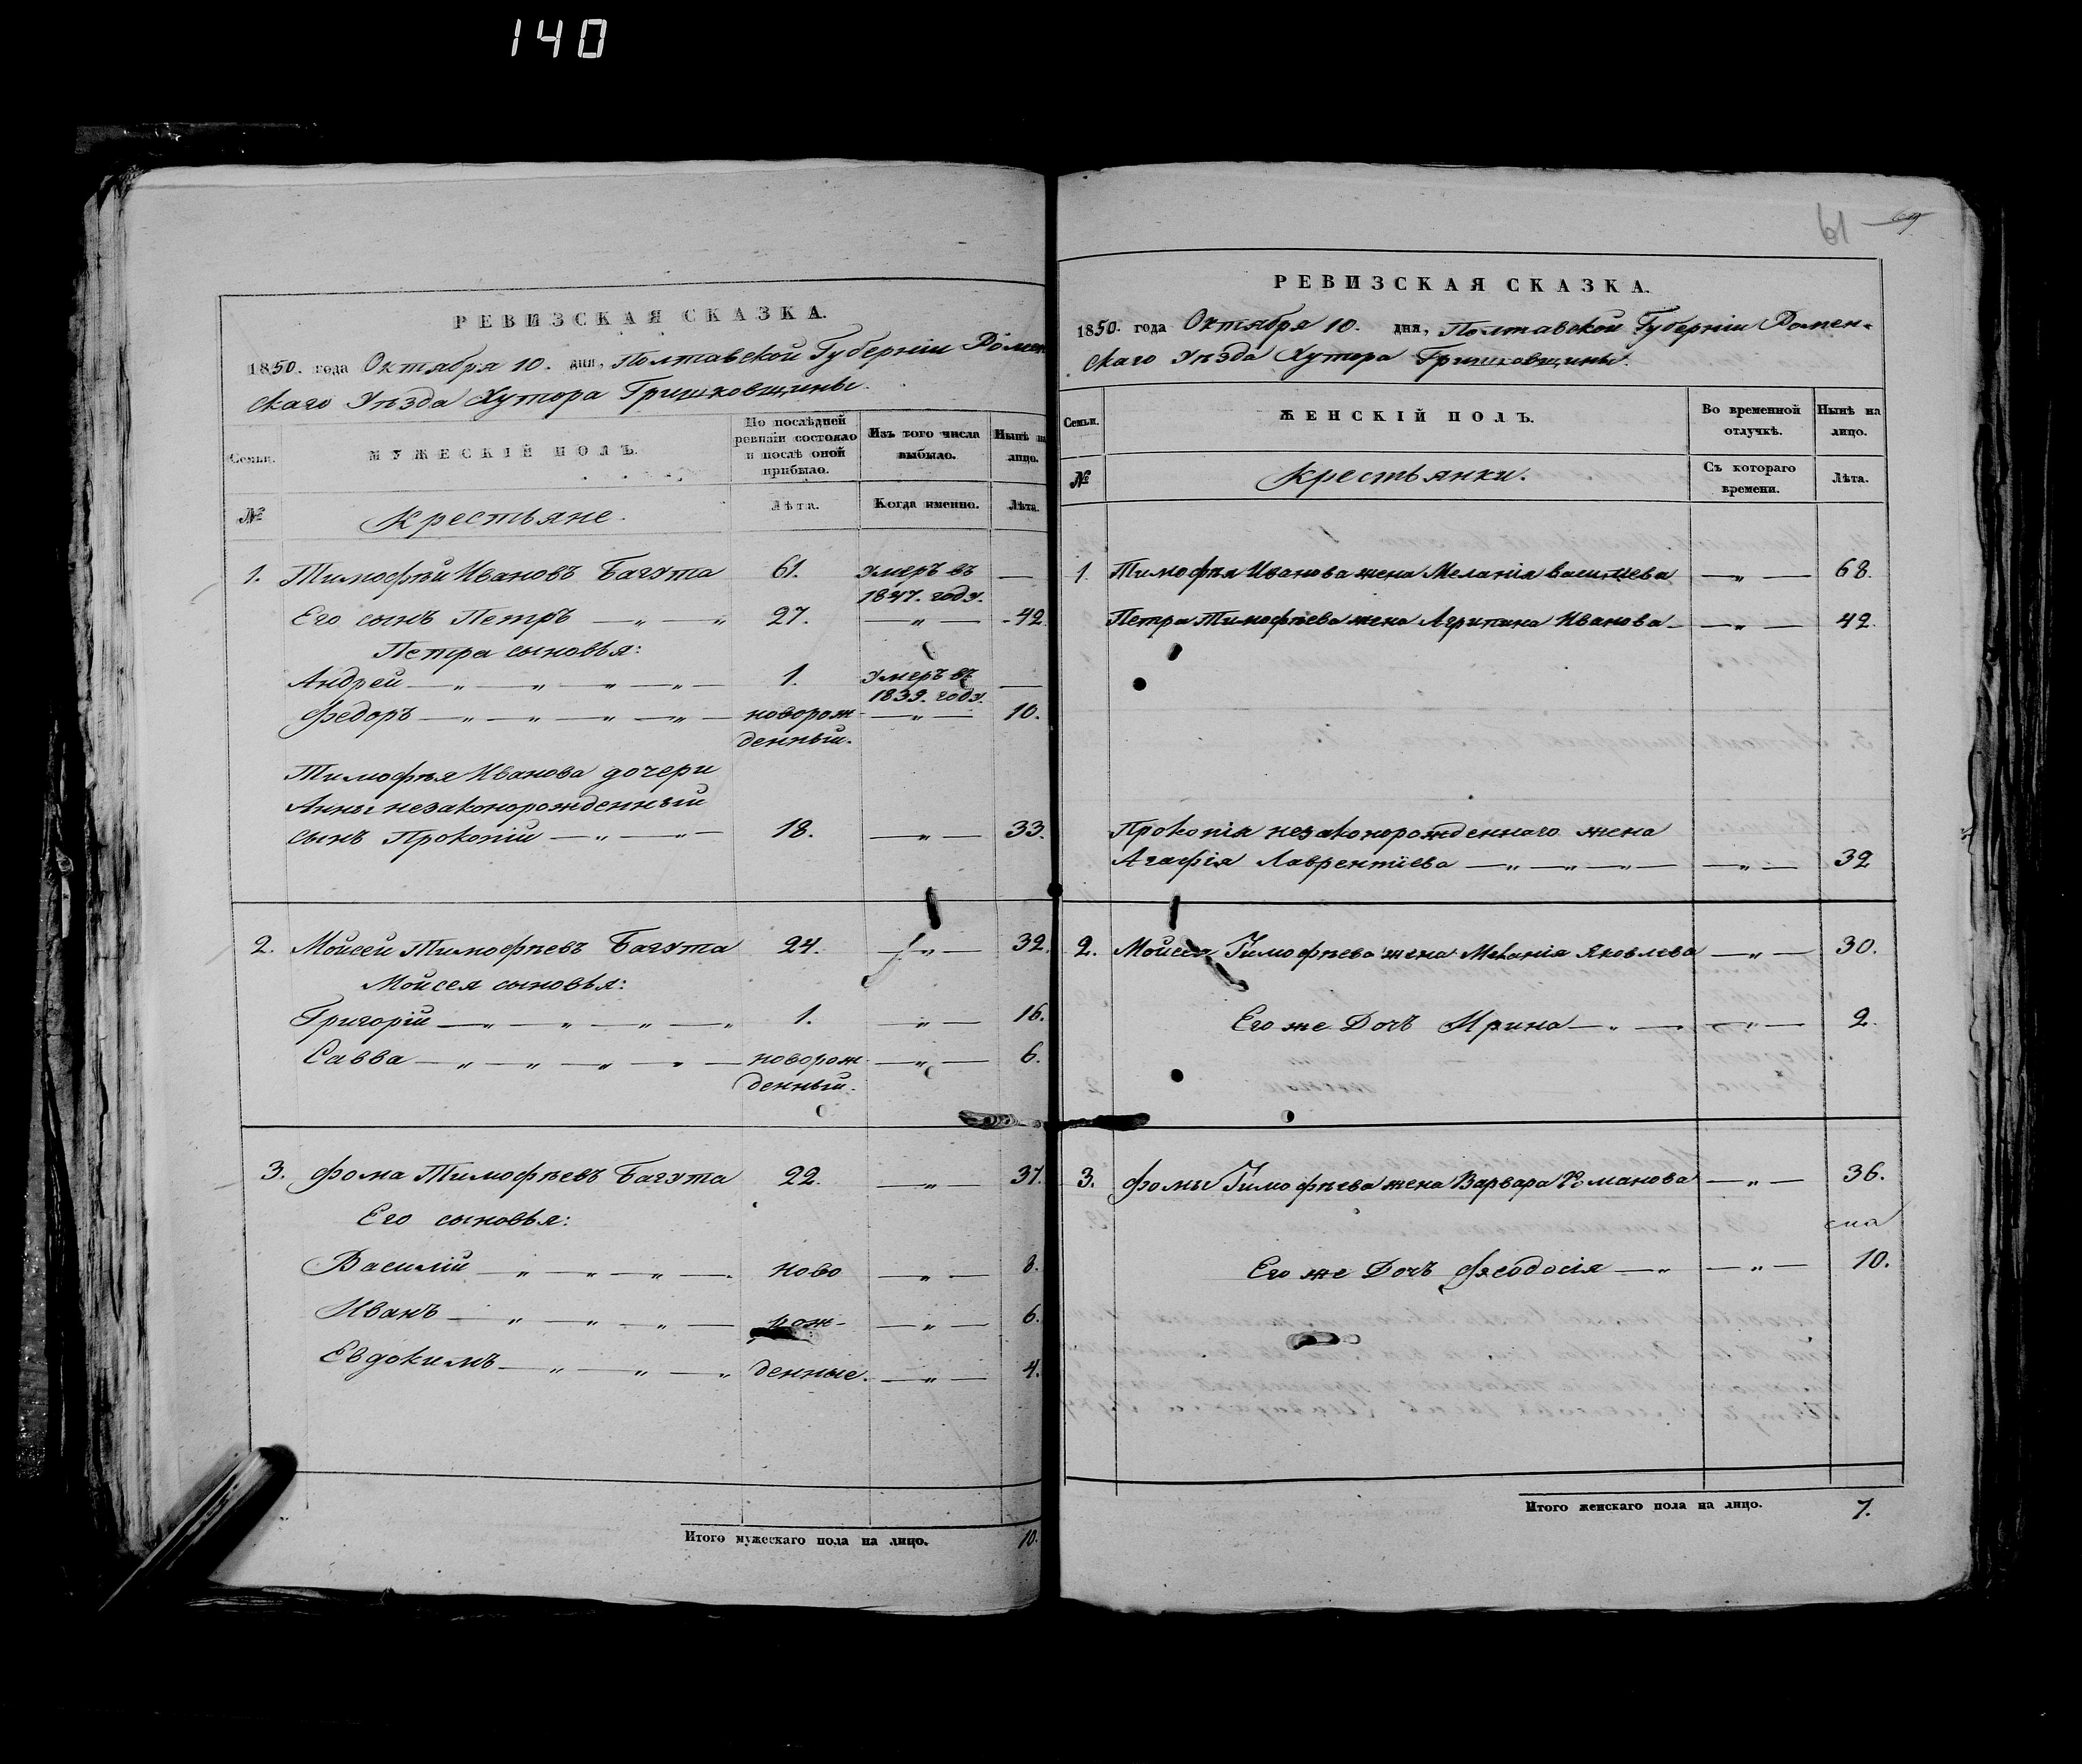 140
РЕВИЗСКАЯ СКАЗКА.
1850. года Октября 10. дня, Полтавской Губерніи Ромен
скаго Уѣзда Хутора Гришковщины.
Семьи.
МУЖЕСКІЙ ПОЛЪ.
По послѣдней ревизіи состояло и послѣ оной прибыло.
Изъ того числа выбыло.
Нынѣ на лицо.
№
Крестьяне.
Лѣта.
Когда именно.
Лѣта.
1. Тимофѣй Ивановъ Багута 61. умеръ въ 1847. году. —
Его сынъ Петръ — „ — „ 27. — „ — 42
Петра сыновья:
Андрей — „ — „ — „ — „ — 1. умеръ въ 1839. году. —
Федоръ — „ — „ — „ — „ — новорож — „ — 10.
денный.
Тимофѣя Иванова дочери
Анны незаконорожденный
сынъ Прокопій — „ — „ — 18. — „ — 33.
2. Мойсей Тимофѣевъ Багута 24. — „ — 32.
Мойсея сыновья:
Григорій — „ — „ — „ — „ 1. — „ — 16.
Савва — „ — „ — „ — „ — новорож — „ — 6.
денный.
3. Фома Тимофѣевъ Багута 22. — „ — 37.
Его сыновья:
Василій — „ — „ — „ — ново — „ — 8.
Иванъ — „ — „ — „ — рож- — „ — 6.
Евдокимъ — „ — „ — „ денные. — „ — 4.
Итого мужескаго пола на лицо. 10.
61 69
РЕВИЗСКАЯ СКАЗКА.
1850. года Октября 10. дня, Полтавской Губерніи Ромен-
скаго Уѣзда Хутора Гришковщины.
Семьи.
ЖЕНСКІЙ ПОЛЪ.
Во временной отлучкѣ.
Нынѣ на лицо.
№
Крестьянки.
Съ котораго времени.
Лѣта.
1. Тимофѣя Иванова жена Меланія Васильева — „ — 68.
Петра Тимофѣева жена Агрипина Иванова — — „ — 42.
Прокопія незаконорожденнаго жена
Агафія Лаврентіева — „ — „ — „ — — „ — 32
2. Мойсея Тимофѣева жена Меланія Яковлева — „ — 30.
Его же Дочъ Ирина — „ — — „ — 2.
3. Фомы Тимофѣева жена Варвара Романова — „ — 36.
Его же Дочъ Феодосія — „ — „ — 10.
Итого женскаго пола на лицо. 7.